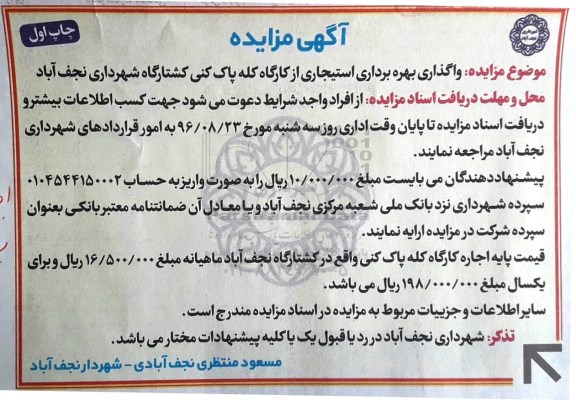 آگهی مزایده
چاپ اول
موضوع مزایده: واگذاری بهره برداری استیجاری از کارگاه کله پاک کنی کشتارگاه شهرداری نجف آباد
محل و مهلت دریافت اسناد مزایده: از افراد واجد شرایط دعوت می شود جهت کسب اطلاعات بیشتر و
دریافت اسناد مزایده تا پایان وقت اداری روز سه شنبه مورخ ۹۶/۰۸/۲۳ به امور قراردادهای شهرداری
نجف آباد مراجعه نمایند.
پیشنهاددهندگان می بایست مبلغ ۱۰/۰۰۰/۰۰۰ ریال را به صورت واریز به حساب ۰۱۰۴۵۴۴۱۵۰۰۰۲
سپرده شهرداری نزد بانک ملی شعبه مرکزی نجف آباد و یا معادل آن ضمانتنامه معتبر بانکی بعنوان
سپرده شرکت در مزایده ارایه نمایند.
قیمت پایه اجاره کارگاه کله پاک کنی واقع در کشتارگاه نجف آباد ماهیانه مبلغ ۱۶/۵۰۰/۰۰۰ ریال و برای
یکسال مبلغ ۱۹۸/۰۰۰/۰۰۰ ریال می باشد.
سایر اطلاعات و جزییات مربوط به مزایده در اسناد مزایده مندرج است.
تذکر: شهرداری نجف آباد در رد یا قبول یک یا کلیه پیشنهادات مختار می باشد.
مسعود منتظری نجف آبادی - شهردار نجف آباد